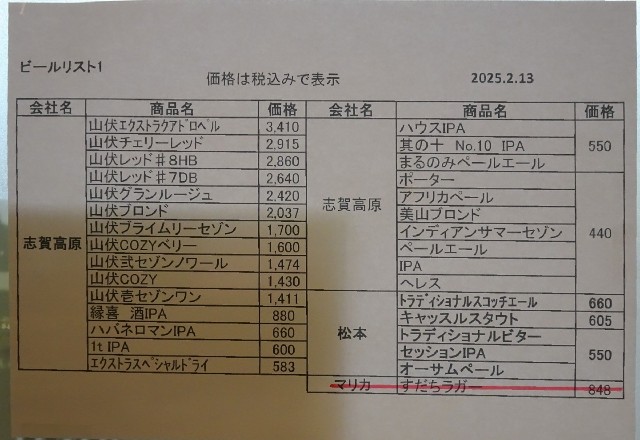 ビールリスト1
価格は税込みで表示
2025.2.13
会社名 商品名 価格
志賀高原
山伏エクストラクアドロペル 3,410
山伏チェリーレッド 2,915
山伏レッド♯8HB 2,860
山伏レッド♯7DB 2,640
山伏グランルージュ 2,420
山伏ブロンド 2,037
山伏プライムリーセゾン 1,700
山伏COZYベリー 1,600
山伏弐セゾンノワール 1,474
山伏COZY 1,430
山伏壱セゾンワン 1,411
縁喜 酒IPA 880
ハバネロマンIPA 660
1t IPA 600
エクストラスペシャルドライ 583
会社名 商品名 価格
志賀高原
ハウスIPA
其の十 No.10 IPA 550
まるのみペールエール
ポーター
アフリカペール
美山ブロンド
インディアンサマーセゾン 440
ペールエール
IPA
ヘレス
松本
トラディショナルスコッチエール 660
キャッスルスタウト 605
トラディショナルビター
セッションIPA 550
オーサムペール
マリカ すだちラガー 848